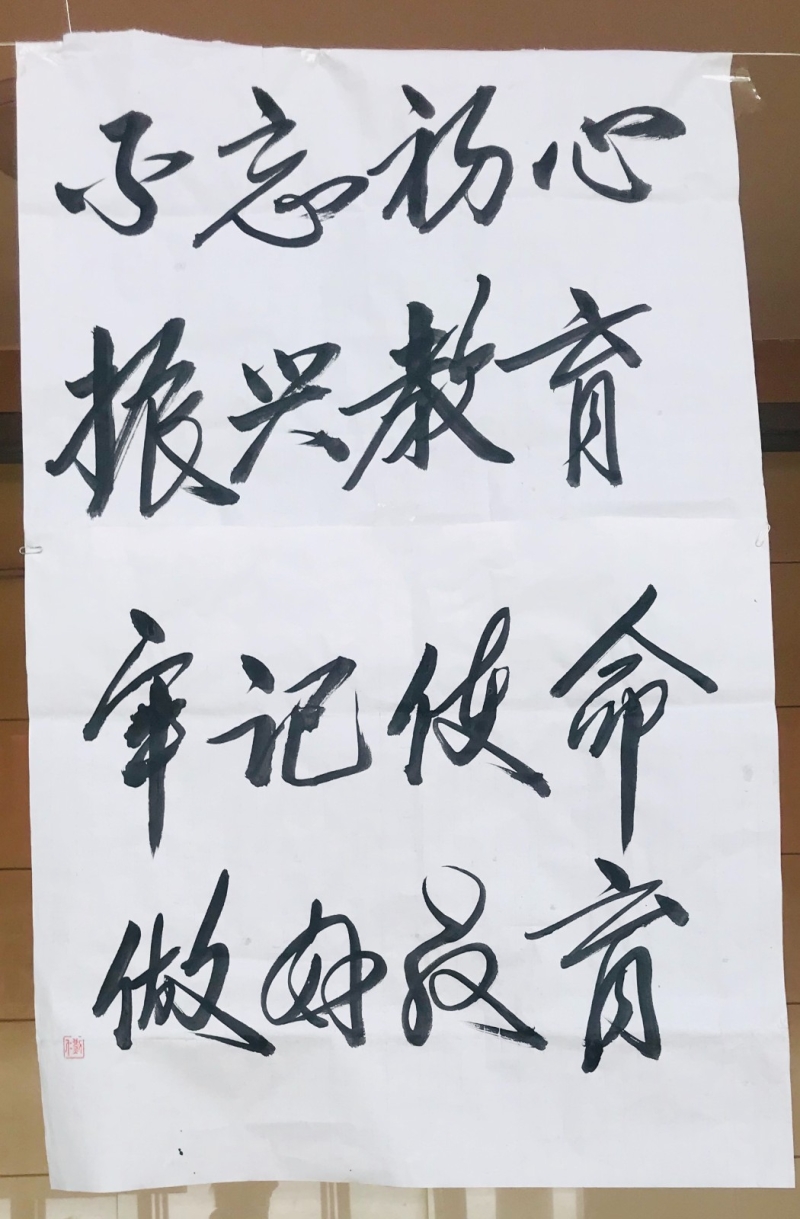 不忘初心
振兴教育
牢记使命
做好教育